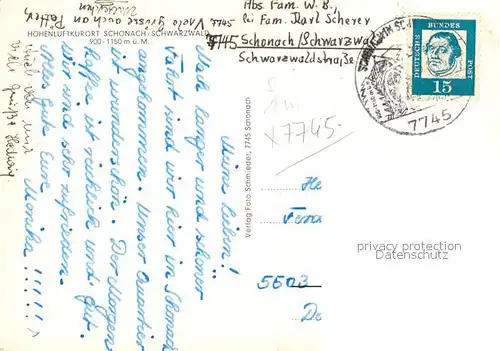 Viele Grüsse auch an
Abs Fam. W. B.
bei Fam. Karl Scherer
7745 Schonach/Schwarzwa
Schwarzwaldstraße
HÖHENLUFTKURORT SCHONACH/SCHWARZWALD
900-1150 m ü. M.
Meine Lieben!
Nach langer und schöner
Fahrt sind wir hier in Schonach
angekommen. Unser Quartier
ist wunderschön. Der Morgen
Kaffee ist reichlich und gut.
Wir sind sehr zufrieden.
Alles Gute Eure
Monika!!!!!
Verlag Foto Schmieder, 7745 Schonach
x7745-
DEUTSCHE BUNDES POST
15
7745
He
5603
De
privacy protection
Datenschutz